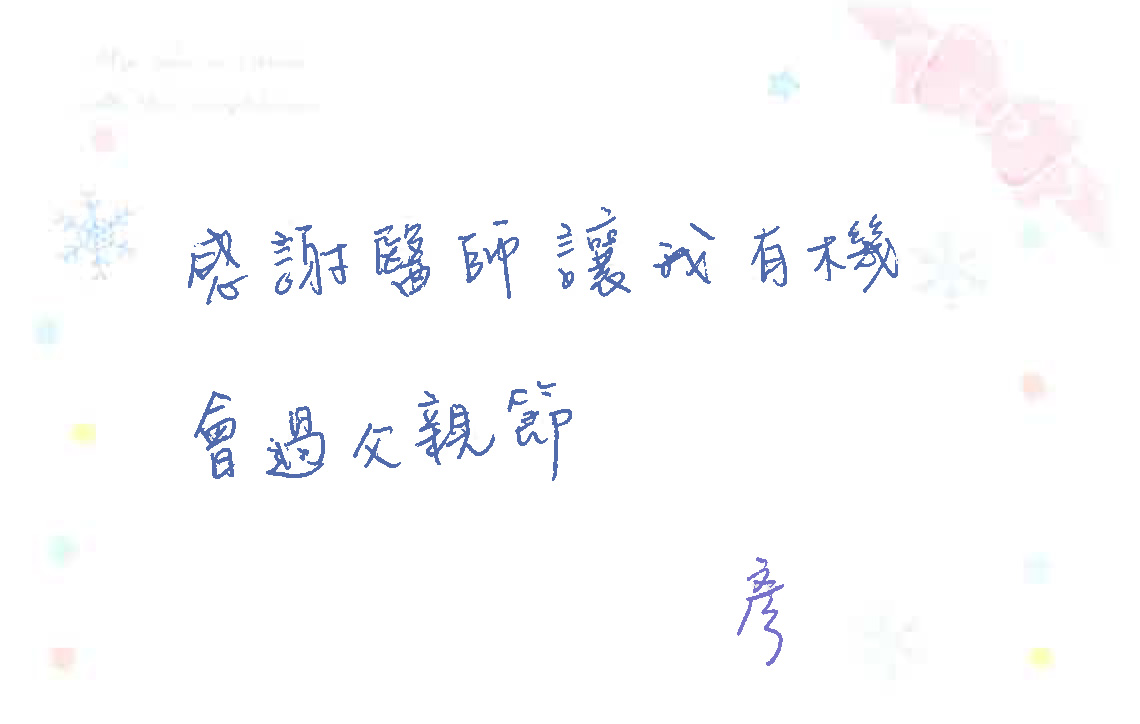 感謝醫師讓我有機
會過父親節
彥